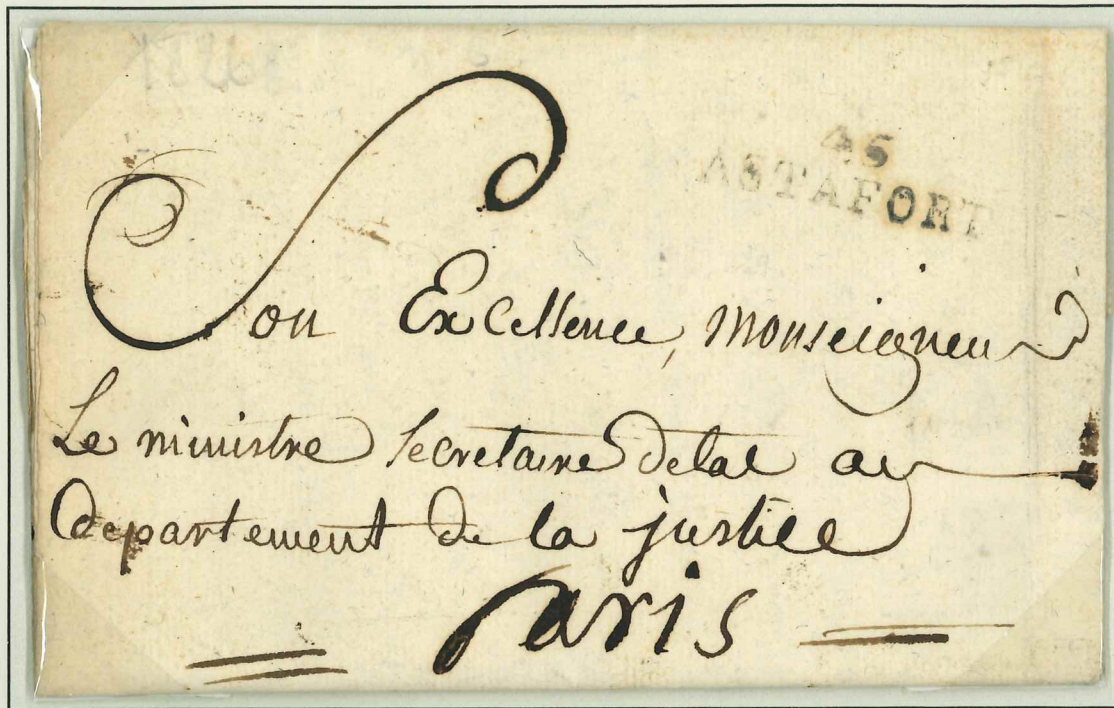 46
ASTAFORT
Son Excellence, Monseigneur
Le ministre secretaire detat au
departement de la justice
Paris